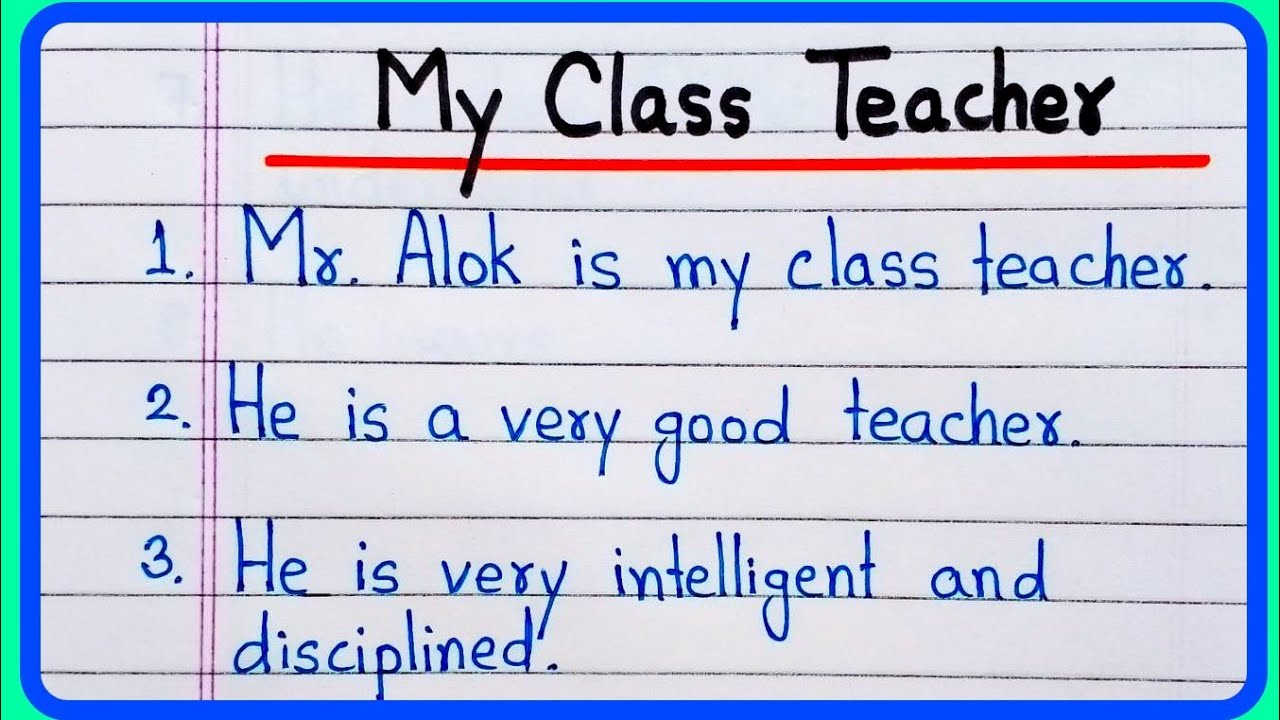 My Class Teacher
1. Mr. Alok is my class teacher.
2. He is a very good teacher.
3. He is very intelligent and
disciplined.